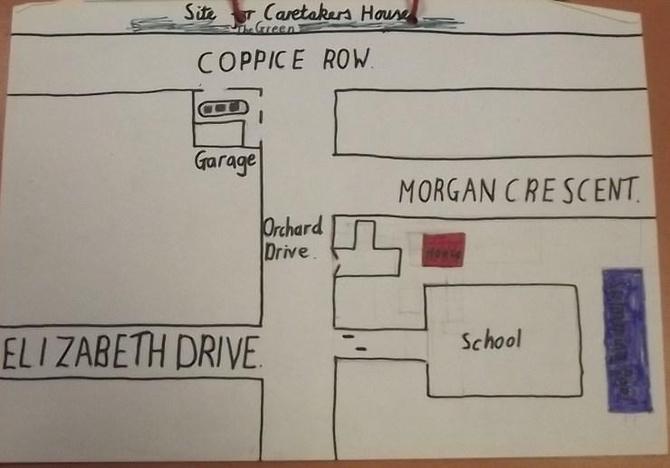 Site for Caretakers House
The Green
COPPICE ROW.
Garage
MORGAN CRESCENT.
Orchard
Drive.
House
ELIZABETH DRIVE.
School
Swimming Pool